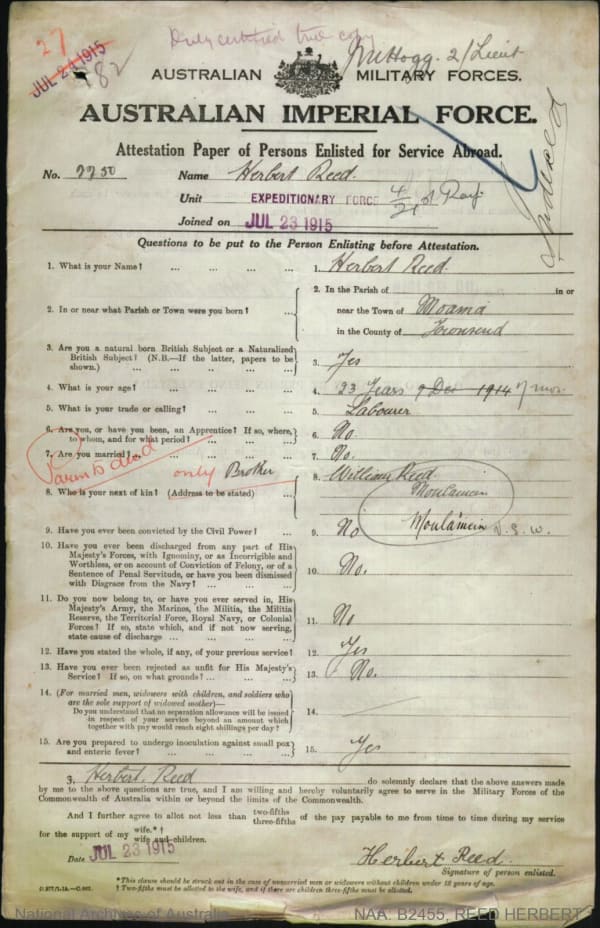 27
JUL 24 1915
782
Duly certified true copy
JM Hogg. 2/Lieut
AUSTRALIAN MILITARY FORCES.
AUSTRALIAN IMPERIAL FORCE.
Attestation Paper of Persons Enlisted for Service Abroad.
No. 2250 Name Herbert Reed.
Unit EXPEDITIONARY FORCE
Joined on JUL 23 1915
Questions to be put to the Person Enlisting before Attestation.
1. What is your Name? ... ... ... ... 1. Herbert Reed.
2. In or near what Parish or Town were you born? ... 2. In the Parish of in or
near the Town of Moama
in the County of Townsend
3. Are you a natural born British Subject or a Naturalized
British Subject? (N.B.—If the latter, papers to be
shown.) ... ... ... ... 3. Yes
4. What is your age? ... ... ... ... 4. 23 Years 9 Dec 1914 7 mos.
5. What is your trade or calling? ... ... ... 5. Labourer
6. Are you, or have you been, an Apprentice? If so, where,
to whom, and for what period? ... ... ... 6. No.
7. Are you married? ... ... ... ... 7. No.
Parents dead
only Brother
8. Who is your next of kin? (Address to be stated) ... 8. William Reed
Moulamein
Moulamein N.S.W.
9. Have you ever been convicted by the Civil Power? ... 9. No
10. Have you ever been discharged from any part of His
Majesty's Forces, with Ignominy, or as Incorrigible and
Worthless, or on account of Conviction of Felony, or of a
Sentence of Penal Servitude, or have you been dismissed
with Disgrace from the Navy? ... ... ... 10. No.
11. Do you now belong to, or have you ever served in, His
Majesty's Army, the Marines, the Militia, the Militia
Reserve, the Territorial Force, Royal Navy, or Colonial
Forces? If so, state which, and if not now serving,
state cause of discharge ... ... ... ... 11. No
12. Have you stated the whole, if any, of your previous service? 12. Yes
13. Have you ever been rejected as unfit for His Majesty's
Service? If so, on what grounds? ... ... ... 13. No.
14. (For married men, widowers with children, and soldiers who
are the sole support of widowed mother)—
Do you understand that no separation allowance will be issued
in respect of your service beyond an amount which
together with pay would reach eight shillings per day? 14.
15. Are you prepared to undergo inoculation against small pox
and enteric fever? ... ... ... ... 15. Yes
I, Herbert Reed do solemnly declare that the above answers made
by me to the above questions are true, and I am willing and hereby voluntarily agree to serve in the Military Forces of the
Commonwealth of Australia within or beyond the limits of the Commonwealth.
And I further agree to allot not less than two-fifths three-fifths of the pay payable to me from time to time during my service
for the support of my wife.*† wife and children.
Date JUL 23 1915
Herbert Reed.
Signature of person enlisted.
*This clause should be struck out in the case of unmarried men or widowers without children under 18 years of age.
† Two-fifths must be allotted to the wife, and if there are children three-fifths must be allotted.
National Archives of Australia NAA: B2455, REED HERBERT